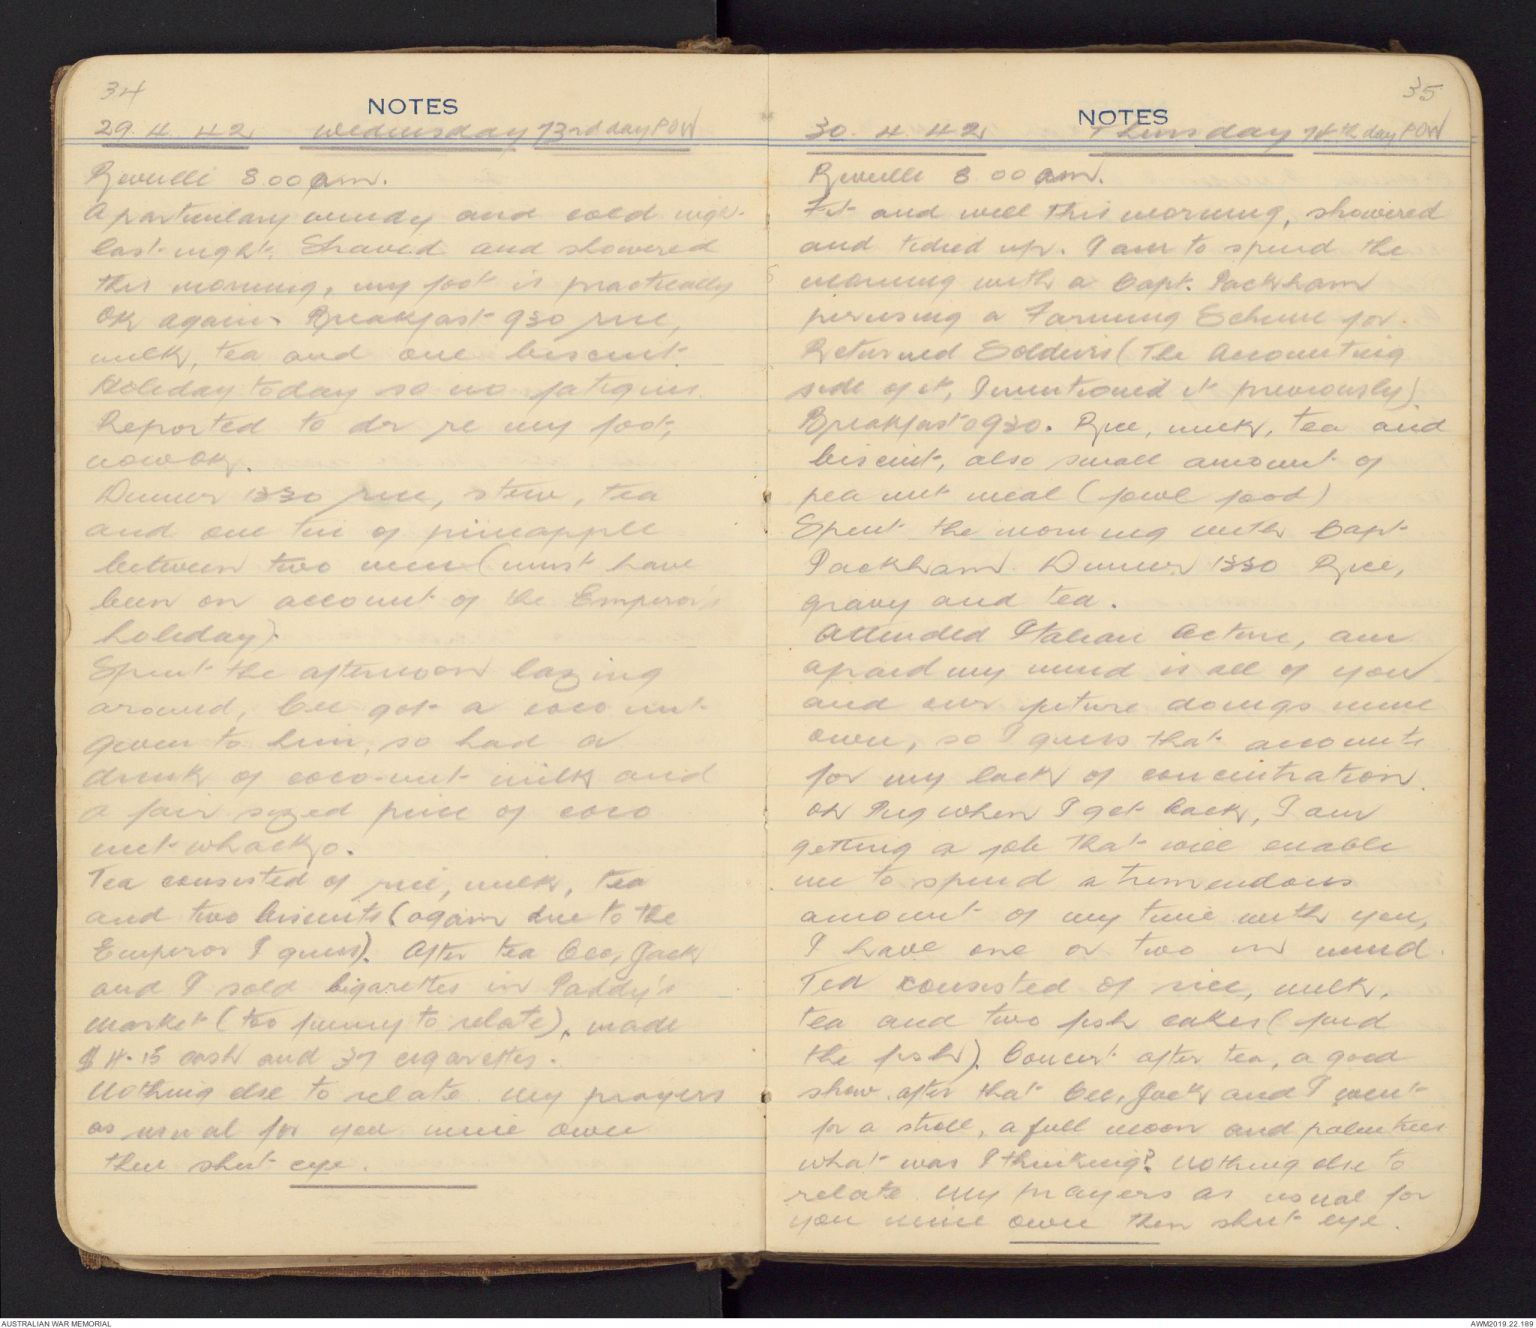 34
NOTES
29. 4. 42 Wednesday 73rd day POW
Reveille 8.00 am.
A particularly windy and cold nigh-
last night. Shaved and showered
this morning, my foot is practically
OK again. Breakfast 930 rice,
milk, tea and one biscuit.
Holiday today so no fatigues.
Reported to dr re my foot,
now OK.
Dinner 1330 rice, stew, tea
and one tin of pineapple
between two men (must have
been on account of the Emperor's
holiday).
Spent the afternoon lazing
around, Cec got a coco nut
given to him, so had a
drink of coco-nut milk and
a fair sized piece of coco
nut whacko.
Tea consisted of rice, milk, tea
and two biscuits (again due to the
Emperor I guess). After tea Cec, Jack
and I sold Cigarettes in Paddy's
market (too funny to relate), made
$ 4.15 cash and 37 cigarettes.
Nothing else to relate my prayers
as usual for you mine own
then shut eye.
35
NOTES
30. 4. 42 Thursday 74th day POW
Reveille 8.00 am.
Fit and well this morning, showered
and tidied up. I am to spend the
morning with a Capt. Packham
perusing a Farming Scheme for
Returned Soldiers (The Accounting
side of it, I mentioned it previously).
Breakfast 0930. Rice, milk, tea and
biscuit, also small amount of
pea nut meal (fowl food)
Spent the morning with Capt
Packham. Dinner 1330 Rice,
gravy and tea.
Attended Italian lecture, am
afraid my mind is all of you
and our future doings mine
own, so I guess that accounts
for my lack of concentration.
Oh Peg when I get back, I am
getting a job that will enable
me to spend a tremendous
amount of my time with you,
I have one or two in mind.
Tea consisted of rice, milk,
tea and two fish cakes (find
the fish). Concert after tea, a good
show. after that Cec, Jack and I went
for a stroll, a full moon and palm trees
what was I thinking? Nothing else to
relate my prayers as usual for
you mine own then shut eye.
AUSTRALIAN WAR MEMORIAL
AWM2019.22.189